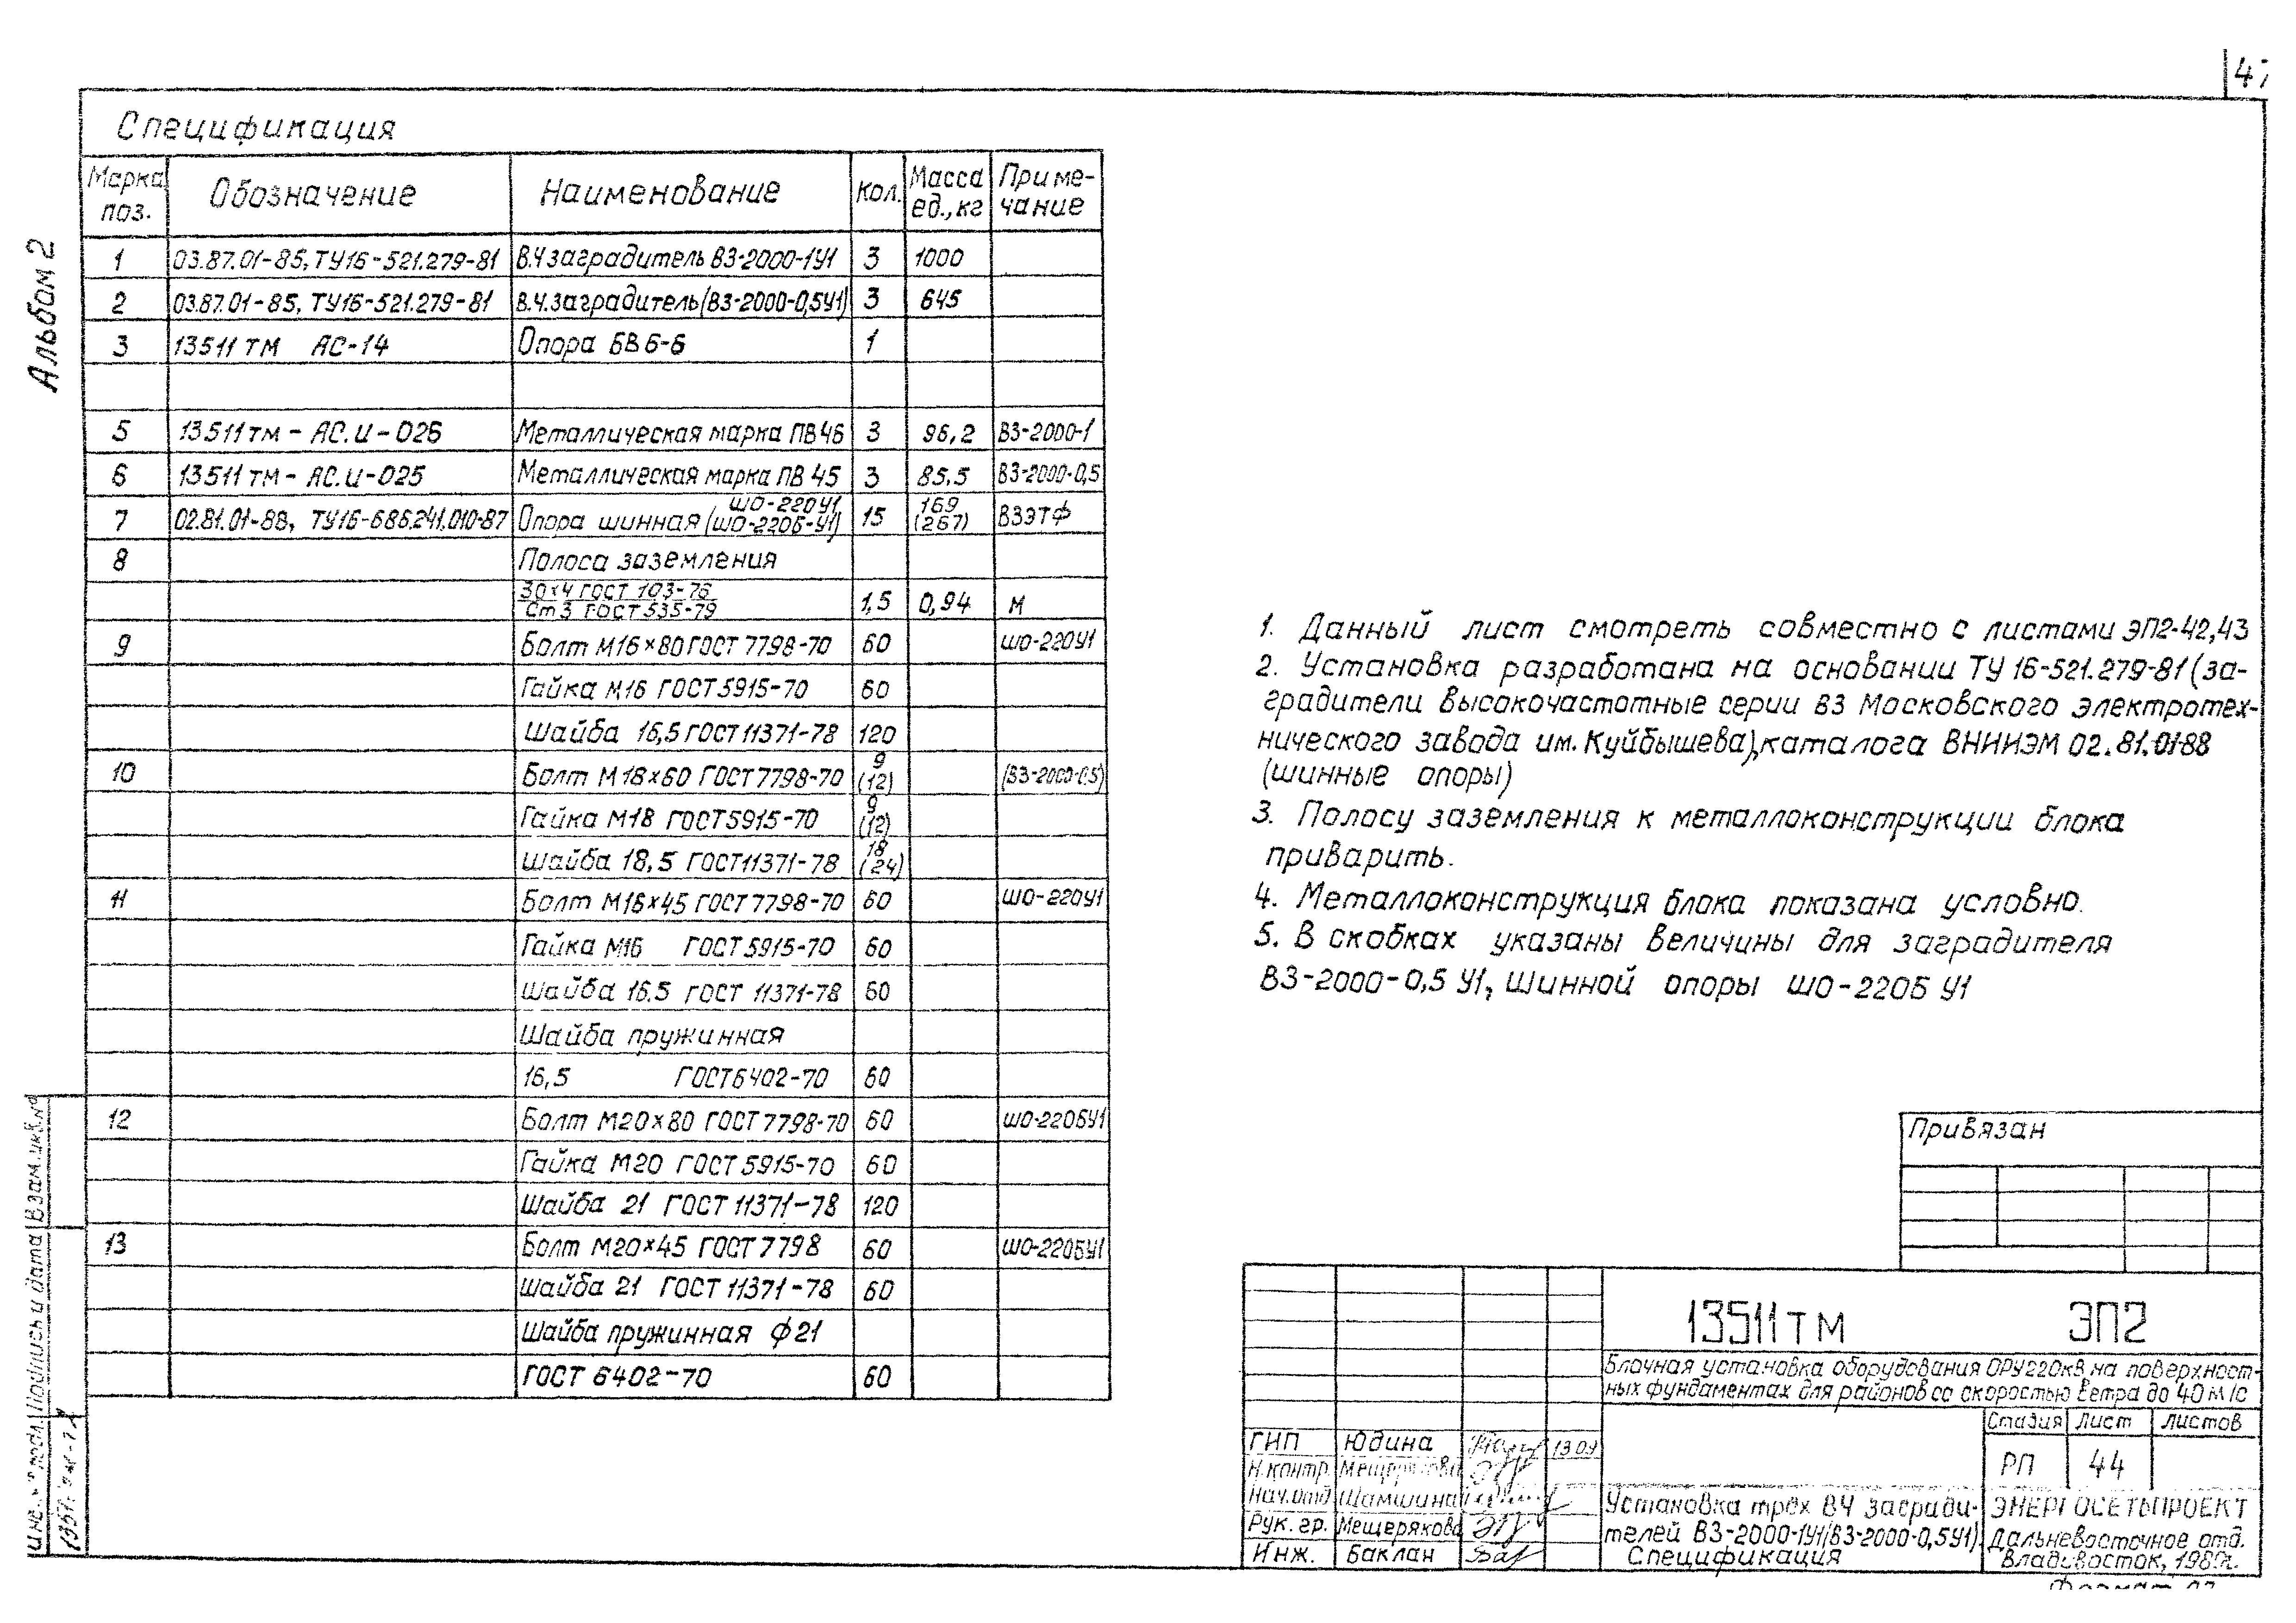 47
Альбом 2
Спецификация
Марка поз. Обозначение Наименование Кол. Масса ед., кг Приме-чание
1 03.87.01-85, ТУ16-521.279-81 В.Ч заградитель ВЗ-2000-1У1 3 1000
2 03.87.01-85, ТУ16-521.279-81 В.Ч. заградитель (ВЗ-2000-0,5У1) 3 645
3 13511 ТМ АС-14 Опора БВ 6-6 1
5 13511 ТМ - АС.И-026 Металлическая марка ПВ 46 3 96,2 ВЗ-2000-1
6 13511 ТМ - АС.И-025 Металлическая марка ПВ 45 3 85,5 ВЗ-2000-0,5
7 02.81.01-88, ТУ16-686.241.010-87 Опора шинная ШО-220У1 (ШО-220Б-У1) 15 169 (267) ВЗЭТФ
8 Полоса заземления
30×4 ГОСТ 103-76
Ст3 ГОСТ 535-79 1,5 0,94 М
9 Болт М16×80 ГОСТ 7798-70 60 ШО-220У1
Гайка М16 ГОСТ 5915-70 60
Шайба 16,5 ГОСТ 11371-78 120
10 Болт М18×60 ГОСТ 7798-70 9 (12) (ВЗ-2000-0,5)
Гайка М18 ГОСТ 5915-70 9 (12)
Шайба 18,5 ГОСТ 11371-78 18 (24)
11 Болт М16×45 ГОСТ 7798-70 60 ШО-220У1
Гайка М16 ГОСТ 5915-70 60
Шайба 16.5 ГОСТ 11371-78 60
Шайба пружинная
16,5 ГОСТ 6402-70 60
12 Болт М20×80 ГОСТ 7798-70 60 ШО-220БУ1
Гайка М20 ГОСТ 5915-70 60
Шайба 21 ГОСТ 11371-78 120
13 Болт М20×45 ГОСТ 7798 60 ШО-220БУ1
Шайба 21 ГОСТ 11371-78 60
Шайба пружинная ф21
ГОСТ 6402-70 60
1. Данный лист смотреть совместно с листами ЭП2-42,43
2. Установка разработана на основании ТУ 16-521.279-81 (за-
градители высокочастотные серии ВЗ Московского электротех-
нического завода им. Куйбышева), каталога ВНИИЭМ 02.81.01-88
(шинные опоры)
3. Полосу заземления к металлоконструкции блока
приварить.
4. Металлоконструкция блока показана условно.
5. В скобках указаны величины для заградителя
ВЗ-2000-0,5 У1, шинной опоры ШО-220Б У1
Привязан
13511 ТМ ЭП2
Блочная установка оборудования ОРУ 220 кВ на поверхност-
ных фундаментах для районов со скоростью ветра до 40 м/с
Стадия Лист Листов
РП 44
ГИП Юдина 13.09
Н.контр. Мещерякова
Нач.отд Шамшина
Рук. гр. Мещерякова
Инж. Баклан
Установка трех ВЧ загради-
телей ВЗ-2000-1У1(ВЗ-2000-0,5У1).
Спецификация
ЭНЕРГОСЕТЬПРОЕКТ
Дальневосточное отд.
Владивосток, 1989г.
Инв. № подл. Подпись и дата Взам. инв. №